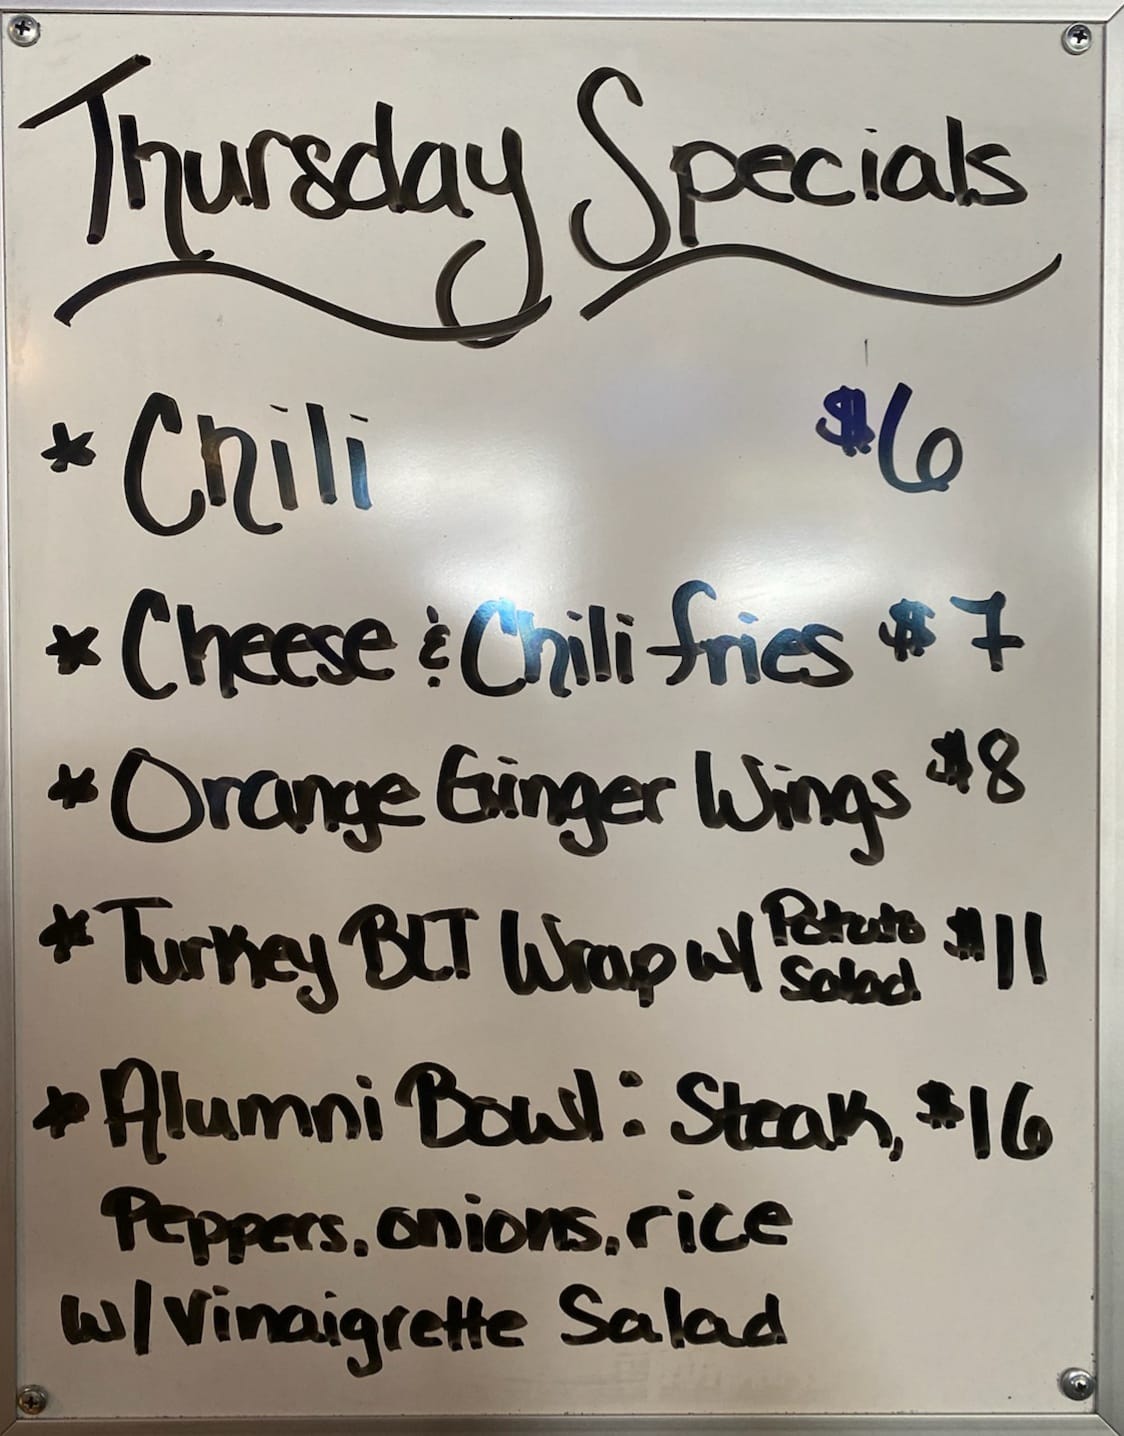 Thursday Specials
* Chili $6
* Cheese & Chili fries $7
* Orange Ginger Wings $8
* Turkey BLT Wrap w/ Potato Salad $11
* Alumni Bowl: Steak, $16
Peppers, onions, rice
w/ Vinaigrette Salad